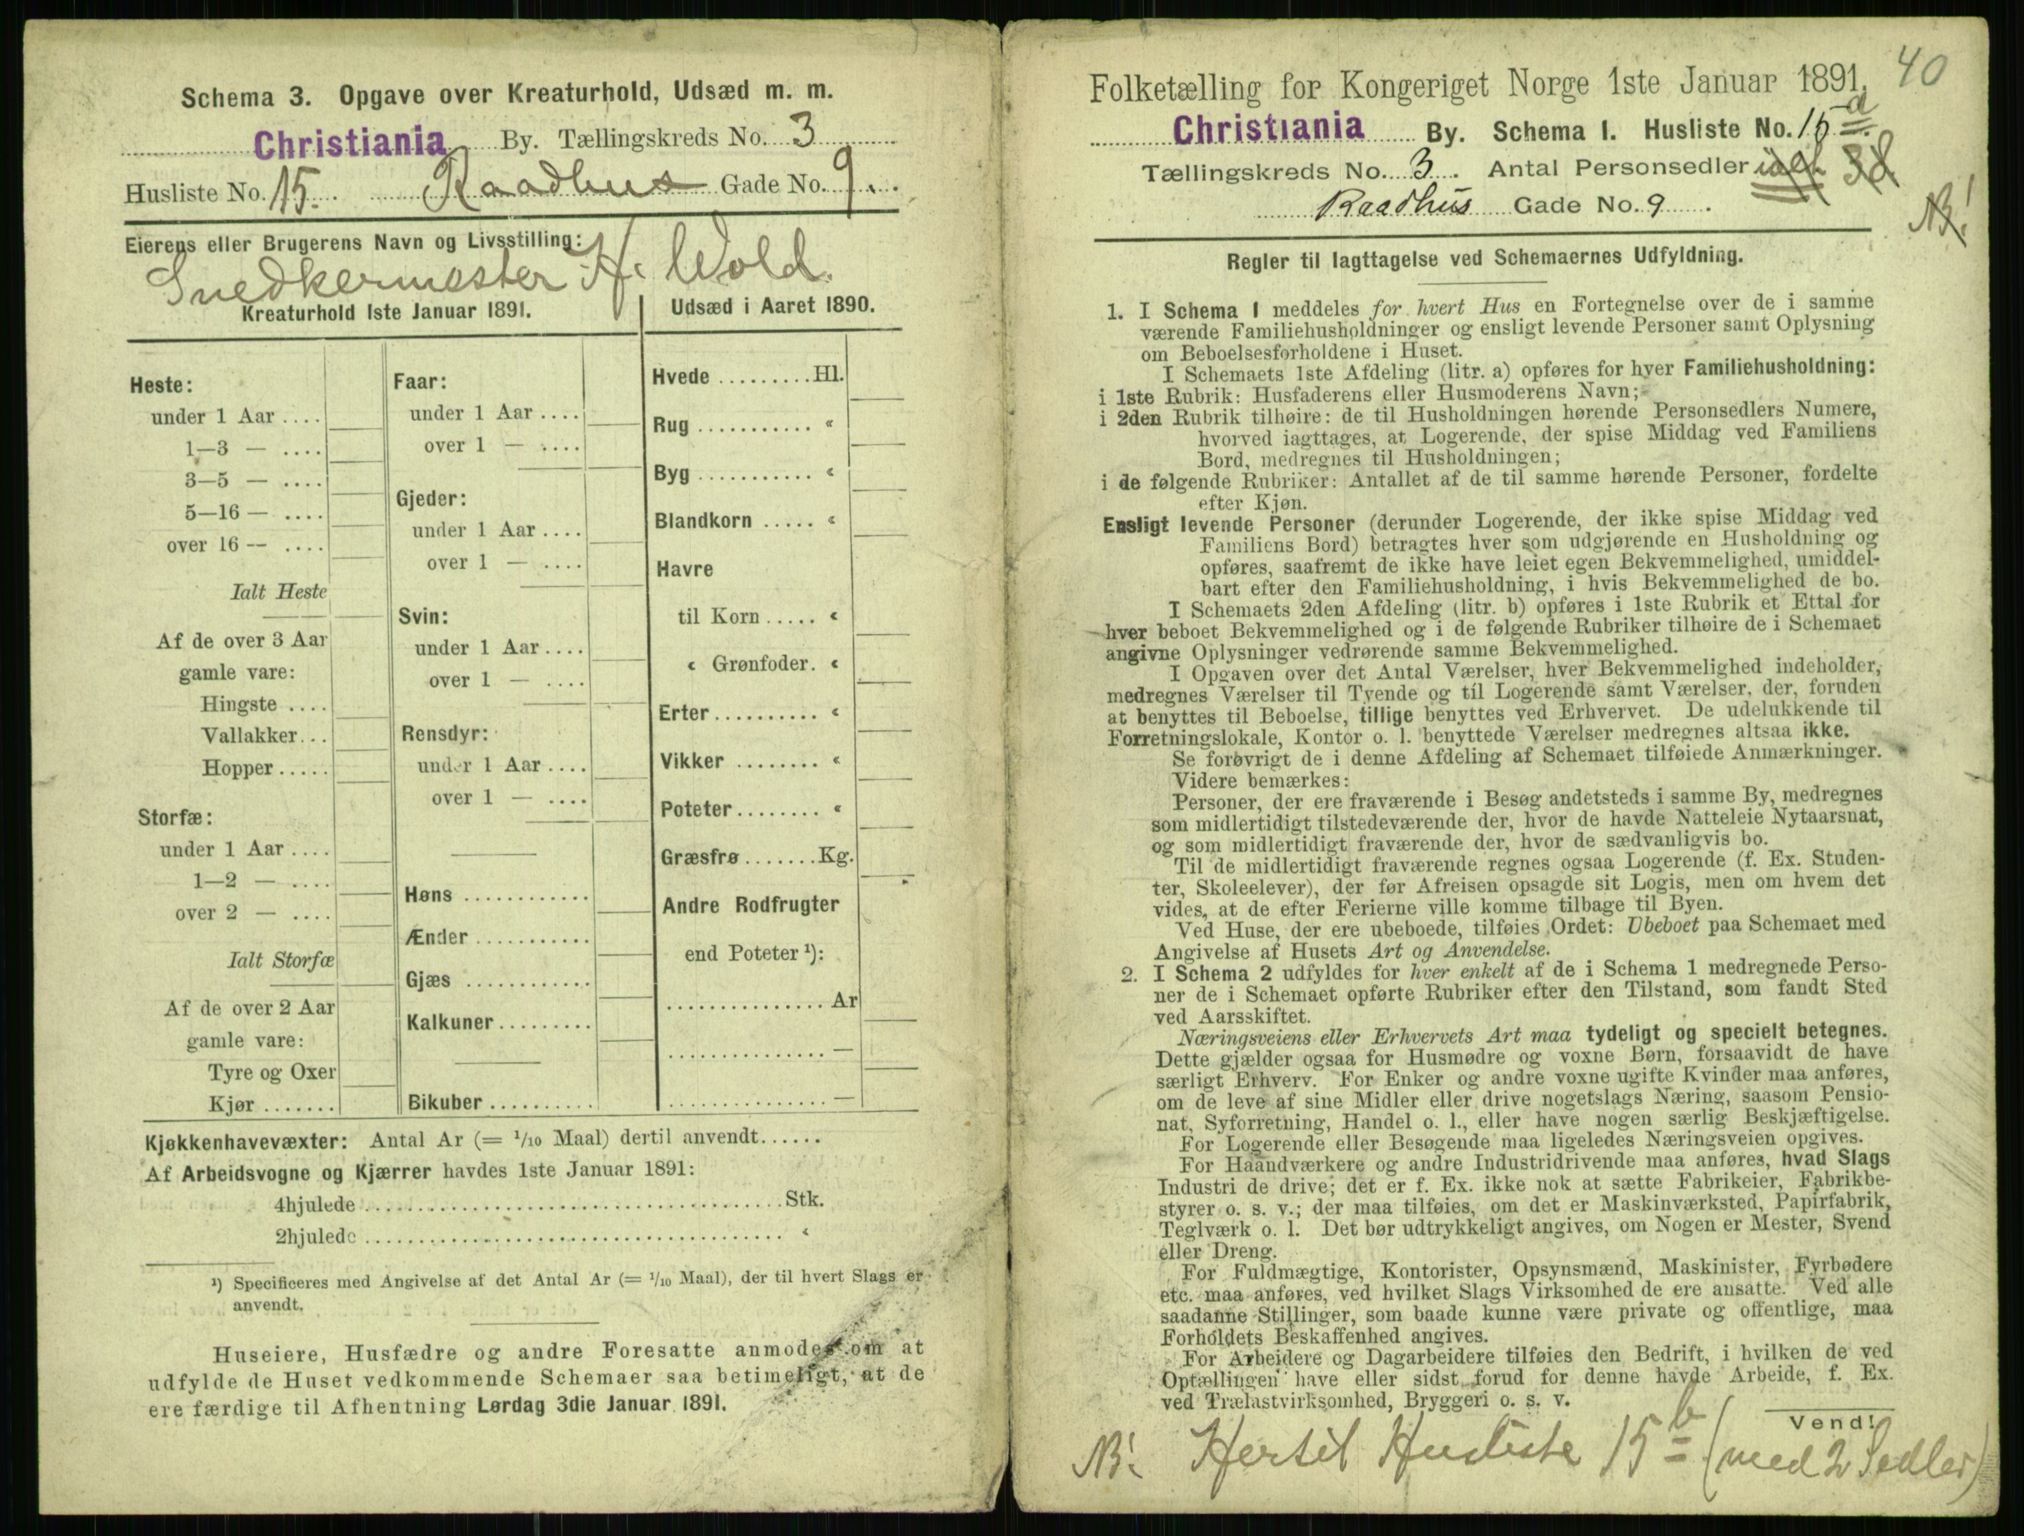 Schema 3. Opgave over Kreaturhold, Udsæd m. m.
Christiania By. Tællingskreds No. 3
Husliste No. 15. Raadhus Gade No. 9.
Eierens eller Brugerens Navn og Livsstilling:
Snedkermester H. Wold.
Kreaturhold 1ste Januar 1891.
Heste:
under 1 Aar ....
1—3 — ....
3—5 — ....
5—16 — ....
over 16 — ....
Ialt Heste
Af de over 3 Aar
gamle vare:
Hingste ....
Vallakker...
Hopper.....
Storfæ:
under 1 Aar ....
1—2 — ....
over 2 — ....
Ialt Storfæ
Af de over 2 Aar
gamle vare:
Tyre og Oxer
Kjør .......
Faar:
under 1 Aar ....
over 1 — ....
Gjeder:
under 1 Aar ....
over 1 — ....
Svin:
under 1 Aar ....
over 1 — ....
Rensdyr:
under 1 Aar ....
over 1 — ....
Høns ............
Ænder ...........
Gjæs ............
Kalkuner.........
Bikuber ..........
Udsæd i Aaret 1890.
Hvede .........Hl.
Rug ........... «
Byg ........... «
Blandkorn ..... «
Havre
til Korn ..... «
« Grønfoder. «
Erter.......... «
Vikker ........ «
Poteter........ «
Græsfrø.......Kg.
Andre Rodfrugter
end Poteter ¹):
............... Ar
............... —
............... —
Kjøkkenhavevæxter: Antal Ar (= 1/10 Maal) dertil anvendt......
Af Arbeidsvogne og Kjærrer havdes 1ste Januar 1891:
4hjulede ........................................ Stk.
2hjulede ........................................ «
¹) Specificeres med Angivelse af det Antal Ar (= 1/10 Maal), der til hvert Slags er
anvendt.
Huseiere, Husfædre og andre Foresatte anmodes om at
udfylde de Huset vedkommende Schemaer saa betimeligt, at de
ere færdige til Afhentning Lørdag 3die Januar 1891.
40
Folketælling for Kongeriget Norge 1ste Januar 1891.
Christiania By. Schema 1. Husliste No. 15 a.
Tællingskreds No. 3. Antal Personsedler
Raadhus Gade No. 9
NB!
Regler til Iagttagelse ved Schemaernes Udfyldning.
1. I Schema 1 meddeles for hvert Hus en Fortegnelse over de i samme
værende Familiehusholdninger og ensligt levende Personer samt Oplysning
om Beboelsesforholdene i Huset.
I Schemaets 1ste Afdeling (litr. a) opføres for hver Familiehusholdning:
i 1ste Rubrik: Husfaderens eller Husmoderens Navn;
i 2den Rubrik tilhøire: de til Husholdningen hørende Personsedlers Numere,
hvorved iagttages, at Logerende, der spise Middag ved Familiens
Bord, medregnes til Husholdningen;
i de følgende Rubriker: Antallet af de til samme hørende Personer, fordelte
efter Kjøn.
Ensligt levende Personer (derunder Logerende, der ikke spise Middag ved
Familiens Bord) betragtes hver som udgjørende en Husholdning og
opføres, saafremt de ikke have leiet egen Bekvemmelighed, umiddel-
bart efter den Familiehusholdning, i hvis Bekvemmelighed de bo.
I Schemaets 2den Afdeling (litr. b) opføres i 1ste Rubrik et Ettal for
hver beboet Bekvemmelighed og i de følgende Rubriker tilhøire de i Schemaet
angivne Oplysninger vedrørende samme Bekvemmelighed.
I Opgaven over det Antal Værelser, hver Bekvemmelighed indeholder,
medregnes Værelser til Tyende og til Logerende samt Værelser, der, foruden
at benyttes til Beboelse, tillige benyttes ved Erhvervet. De udelukkende til
Forretningslokale, Kontor o. l. benyttede Værelser medregnes altsaa ikke.
Se forøvrigt de i denne Afdeling af Schemaet tilføiede Anmærkninger.
Videre bemærkes:
Personer, der ere fraværende i Besøg andetsteds i samme By, medregnes
som midlertidigt tilstedeværende der, hvor de havde Natteleie Nytaarsnat,
og som midlertidigt fraværende der, hvor de sædvanligvis bo.
Til de midlertidigt fraværende regnes ogsaa Logerende (f. Ex. Studen-
ter, Skoleelever), der før Afreisen opsagde sit Logis, men om hvem det
vides, at de efter Ferierne ville komme tilbage til Byen.
Ved Huse, der ere ubeboede, tilføies Ordet: Ubeboet paa Schemaet med
Angivelse af Husets Art og Anvendelse.
2. I Schema 2 udfyldes for hver enkelt af de i Schema 1 medregnede Perso-
ner de i Schemaet opførte Rubriker efter den Tilstand, som fandt Sted
ved Aarsskiftet.
Næringsveiens eller Erhvervets Art maa tydeligt og specielt betegnes.
Dette gjælder ogsaa for Husmødre og voxne Børn, forsaavidt de have
særligt Erhverv. For Enker og andre voxne ugifte Kvinder maa anføres,
om de leve af sine Midler eller drive nogetslags Næring, saasom Pensio-
nat, Syforretning, Handel o. l., eller have nogen særlig Beskjæftigelse.
For Logerende eller Besøgende maa ligeledes Næringsveien opgives.
For Haandværkere og andre Industridrivende maa anføres, hvad Slags
Industri de drive; det er f. Ex. ikke nok at sætte Fabrikeier, Fabrikbe-
styrer o. s. v.; der maa tilføies, om det er Maskinværksted, Papirfabrik,
Teglværk o. l. Det bør udtrykkeligt angives, om Nogen er Mester, Svend
eller Dreng.
For Fuldmægtige, Kontorister, Opsynsmænd, Maskinister, Fyrbødere
etc. maa anføres, ved hvilket Slags Virksomhed de ere ansatte. Ved alle
saadanne Stillinger, som baade kunne være private og offentlige, maa
Forholdets Beskaffenhed angives.
For Arbeidere og Dagarbeidere tilføies den Bedrift, i hvilken de ved
Optællingen have eller sidst forud for denne havde Arbeide, f. Ex.
ved Trælastvirksomhed, Bryggeri o. s. v.
Vend!
NB! Hertil Husliste 15 b (med 2 Sedler)